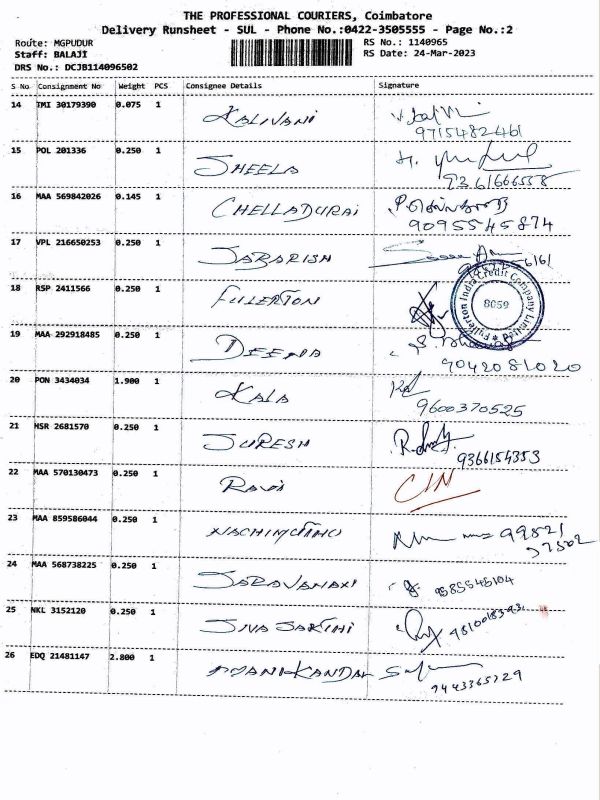 THE PROFESSIONAL COURIERS, Coimbatore
Delivery Runsheet - SUL - Phone No.:0422-3505555 - Page No.:2
Route: MGPUDUR RS No.: 1140965
Staff: BALAJI RS Date: 24-Mar-2023
DRS No.: DCJB114096502
S No Consignment No Weight PCS Consignee Details Signature
14 TMI 30179390 0.075 1 KALIVANI
9715482461
15 POL 201336 0.250 1 SHEELA
9361666558
16 MAA 569842026 0.145 1 CHELLADURAI
9095545874
17 VPL 216650253 0.250 1 SABARISH
18 RSP 2411566 0.250 1 FULLERTON
Fullerton India Credit Company Limited
8059
19 MAA 292918485 0.250 1 DEENA
9042081020
20 PON 3434034 1.900 1 KALA
9600370525
21 HSR 2681570 0.250 1 SURESH
9366154353
22 MAA 570130473 0.250 1 RAVI
23 MAA 859586044 0.250 1 NACHIMUTHU
99521
24 MAA 568738225 0.250 1 SARAVANAN
9585545104
25 NKL 3152120 0.250 1 SIVA SAKTHI
26 EDQ 21481147 2.800 1 MANIKANDAN
9443365729